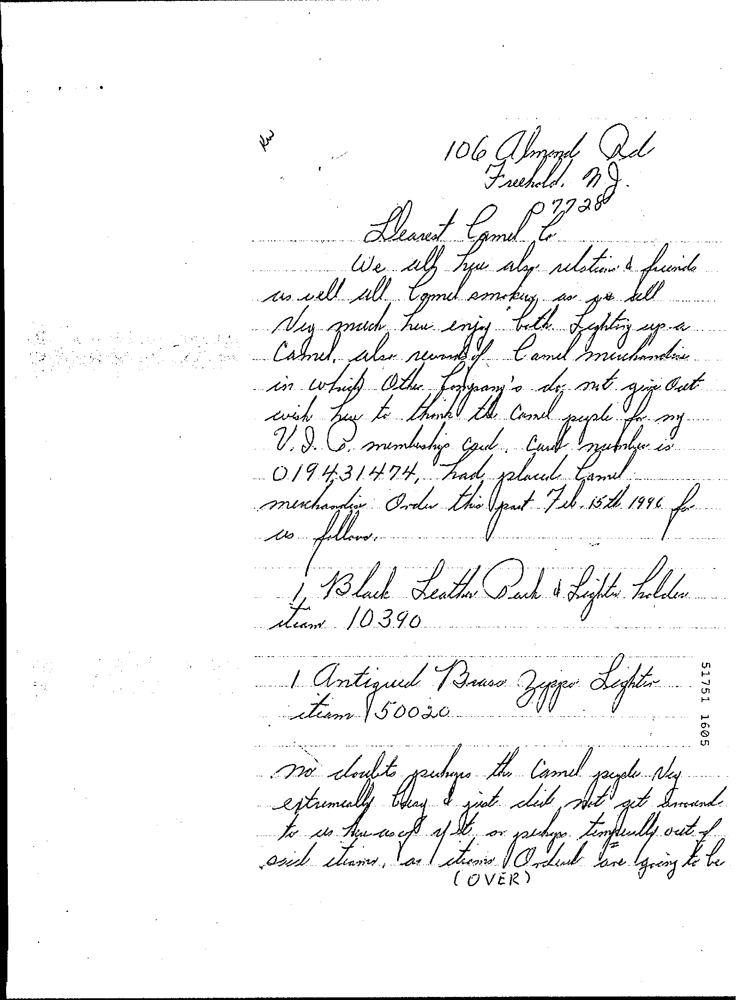 106 Almond Rd
Freehold, N.J.
07728
Dearest Camel Co
We all here also relations & friends
as well all Camel smoking as we all
Very much here enjoy both Lighting up a
Camel, also receiving Camel merchandise
in which Other Company's do not give Out
wish here to thank the Camel people for my
V.I.P. membership card. Card number is
019431474, had placed Camel
merchandise Order this past Feb. 15th 1996 for
as follows.
1 Black Leather Pack & Lighter holder
iteam 10390
1 Antiqued Brass Zippo Lighter
iteam 150020
51751 1605
no doubts perhaps the Camel people Very
extremeally busy & just did not get around
to us here as of yet or perhaps out of
said iteams, as iteams Ordered are going to be
(OVER)